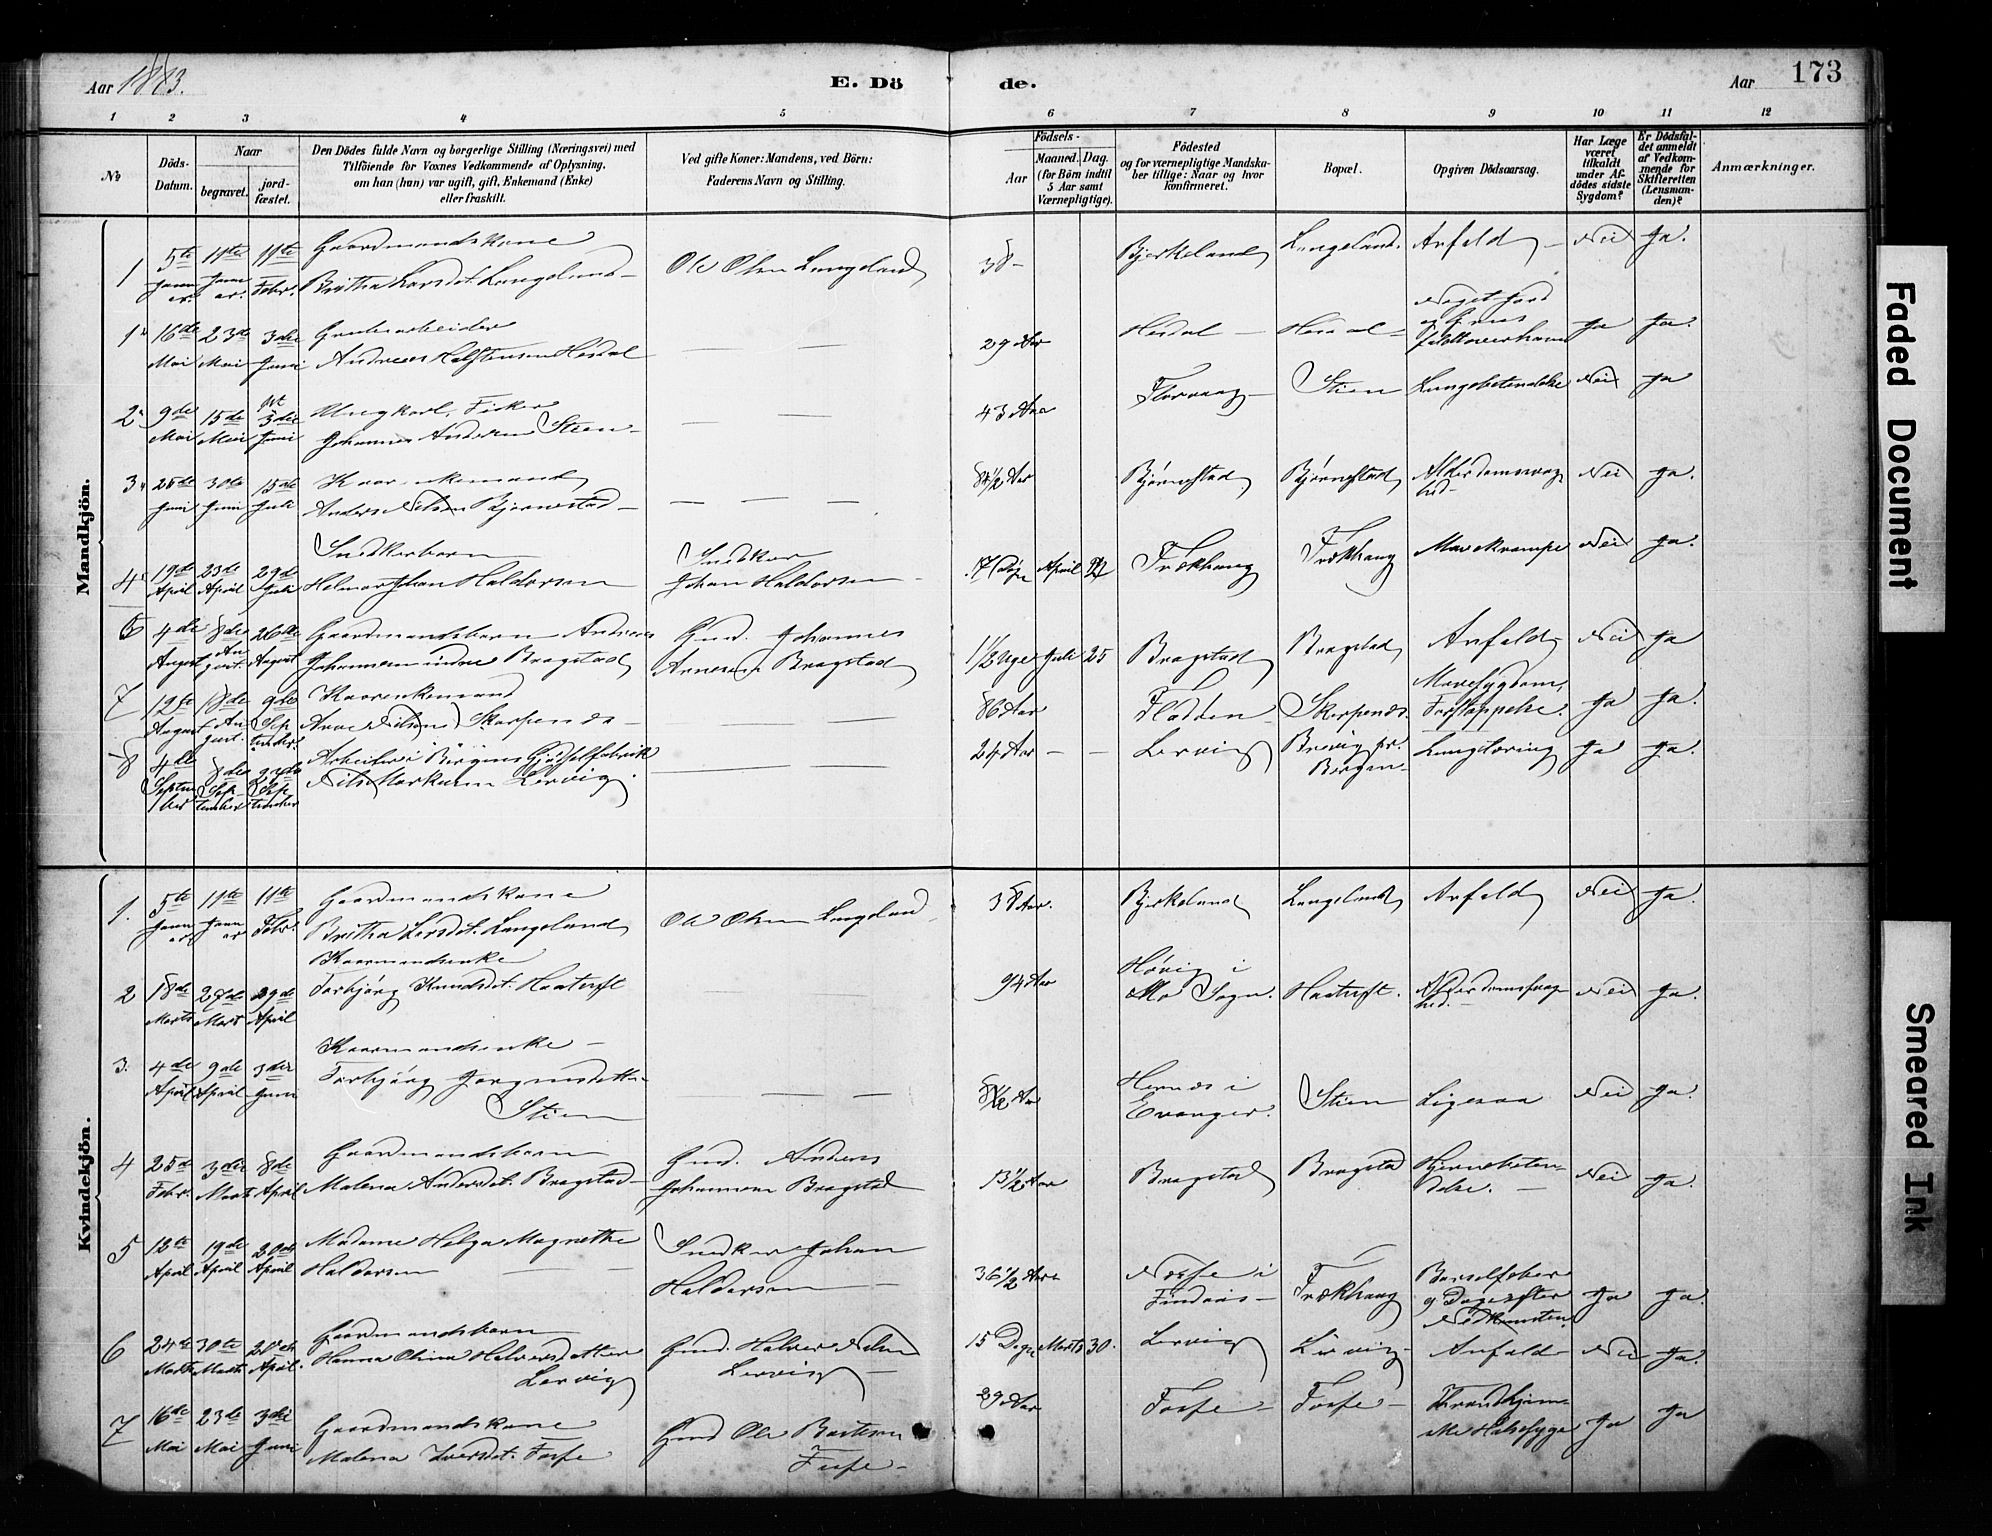 Aar 1883.
E. Dö
de.
Aar
173
1 2 3 4 5 6 7 8 9 10 11 12
No
Döds-
Datum.
Naar
begravet.
jord-
fæstet.
Den Dödes fulde Navn og borgerlige Stilling (Næringsvei) med
Tilföiende for Voxnes Vedkommende af Oplysning,
om han (hun) var ugift, gift, Enkemand (Enke)
eller fraskilt.
Ved gifte Koner: Mandens, ved Börn:
Faderens Navn og Stilling.
Födsels-
Aar
Maaned. Dag.
(for Börn indtil
5 Aar samt
Værnepligtige).
Födested
og for værnepligtige Mandska-
ber tillige: Naar og hvor
konfirmeret.
Bopæl.
Opgiven Dödsaarsag.
Har Læge
været
tilkaldt
under Af-
dödes sidste
Sygdom?
Er Dödsfal-
det anmeldt
af Vedkom-
mende for
Skifteretten
(Lensman-
den)?
Anmærkninger.
Mandkjön.
1 5te Januar 11te Januar 11te Febr. Gaardmandskone
Britha Larsdt. Langeland Ole Olsen Langeland 38 Bjerkeland Langeland. Anfald Nei Ja.
1 16de Mai 23de Mai 3die Juni
Andreas Halstensen Hesdal 29 Aar Hesdal Hesdal Ja Ja.
2 9de Mai 15de Mai 3die Juni Ungkarl, Fisker
Johannes Andersen Stien 43 Aar Stien Lungebetændelse Nei Ja
3 25de Juni 30te Juni 15de Juli
Anders Nilsen Bjørnestad Bjørnestad Bjørnestad Alderdomssvag-
hed Nei Ja.
4 19de April 23de April 29de Juli Snedkerbarn
Helmer Johan Haldorsen Snedker
Johan Haldorsen April Trækhaug Trækhaug Mavekrampe Nei Ja.
6 4de August 8de August 26de August Gaardmandsbarn Andreas
Johannesen indre Bragstad Gmd. Johannes
Arnesen Bragstad 1 1/2 Uge Juli 25 Bragstad Bragstad Anfald Nei Ja
7 12te August 18de August 9de September Kaarenkemand
Arne Nilsen Skorpenes 86 Aar Fladden Skorpenes. Mavesygdom,
Forstoppelse. Ja Ja.
8 4de September 8de September 23de September Arbeider i Bergens Gjødselfabrik
Nils Markusen Lervig. 24 Aar Lervig Brevig pr.
Bergen Lungetæring Ja Ja.
Kvindekjön.
1. 5te Januar 11te Januar 11te Febr. Gaardmandskone
Britha Larsdt. Langeland Ole Olsen Langeland 38 Aar. Bjerkeland Langeland Anfald Nei Ja.
2 18de Marts 27de Mart 29de April Kaarmandsenke
Torbjørg Knudsdt. Haatuft 94 Aar Høvig i
Mo Sogn. Haatuft. Alderdomssvag-
hed. Nei Ja.
3. 4de April 9de April 3die Juni Kaarmandsenke
Torbjørg Jørgensdatter
Stien Hernes i
Evanger. Stien Ligesaa Nei Ja.
4 25de Febr. 3die Marts 8de April Gaardmandsbarn
Malena Andersdt. Bragstad Gmd. Anders
Johannesen Bragstad 13 1/2 Aar Bragstad Bragstad Hjernebeten-
delse. Nei Ja.
5 12te April 19de April 20de April Madame Helga Magnethe
Haldorsen Snedker Johan
Haldorsen 36 1/2 Aar Nesse i
Findaas Trækhaug Barselfeber
9 Dage efter
Nedkomsten. Ja Ja.
6 24de Marts 30te Marts 20de April. Gaardmandsbarn
Hanna Olina Halversdatter
Lervig Gmd. Halver Nilsen
Lervig 15 Døgn Marts 30. Lervig Lervig Anfald Nei Ja.
7 16de Mai 23de Mai 3die Juni Gaardmandskone
Malena Iversdt. Fosse Gmd Ole Bertesen
Fosse 29 Aar Fosse Fosse Halssyge Ja Ja
Faded Document
Smeared Ink